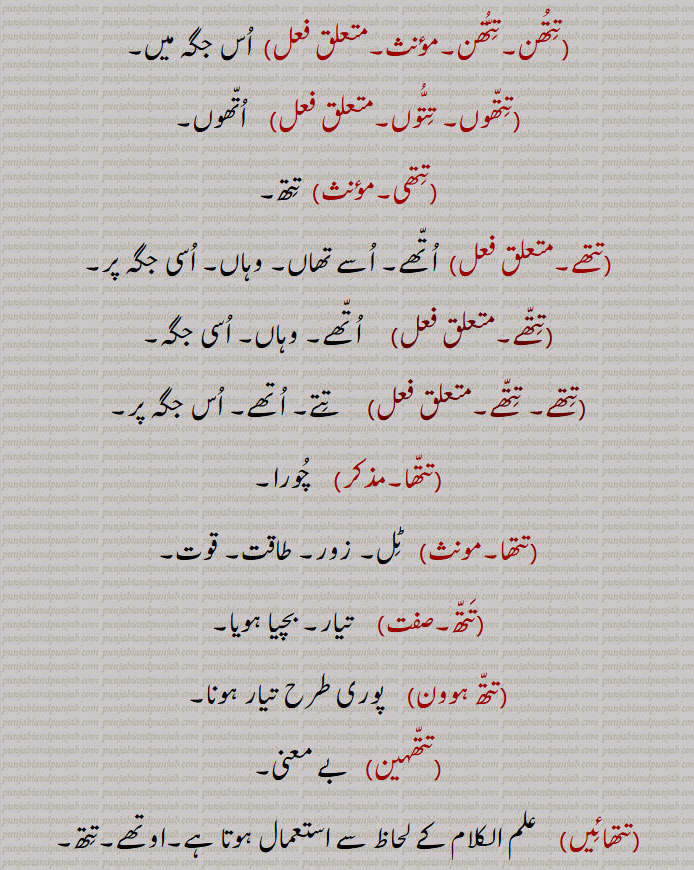 (تِتُھن۔تِتُّھن۔مؤنث۔متعلق فعل) اُس جگہ میں۔
(تِتّھوں۔ تِتُّوں۔متعلق فعل) اُتّھوں۔
(تِتھی۔مؤنث) تِتھ۔
(تتھے۔متعلق فعل) اُتّھے۔ اُسے تھاں۔ وہاں۔ اُسی جگہ پر۔
(تِتّھے۔متعلق فعل) اُتّھے۔ وہاں۔ اُسی جگہ۔
(تِتھے۔ تِتّھے۔متعلق فعل) تِتے۔ اُتھے۔ اُس جگہ پر۔
(تتّھا۔مذکر) چُورا۔
(تتھا۔مونث) ٹِل۔ زور۔ طاقت۔ قوت۔
(تَتّھ۔صفت) تیار۔ بچیا ہویا۔
(تتّھ ہوون) پوری طرح تیار ہونا۔
(تتّھہین) بے معنی۔
(تتھائیِں) علم الکلام کے لحاظ سے استعمال ہوتا ہے۔اوتھے۔تِتھ۔